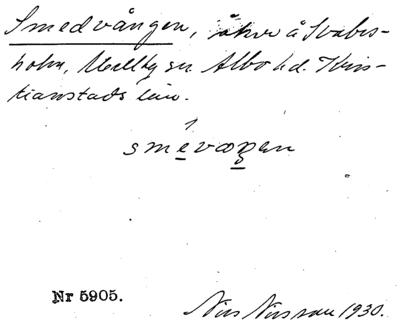 Smedvången, åker å Svabes-
holm, Mellby sn Albo hd. Kris-
tianstads län.
smevaŋen
Nr 5905.
Nils Nilsson 1930.